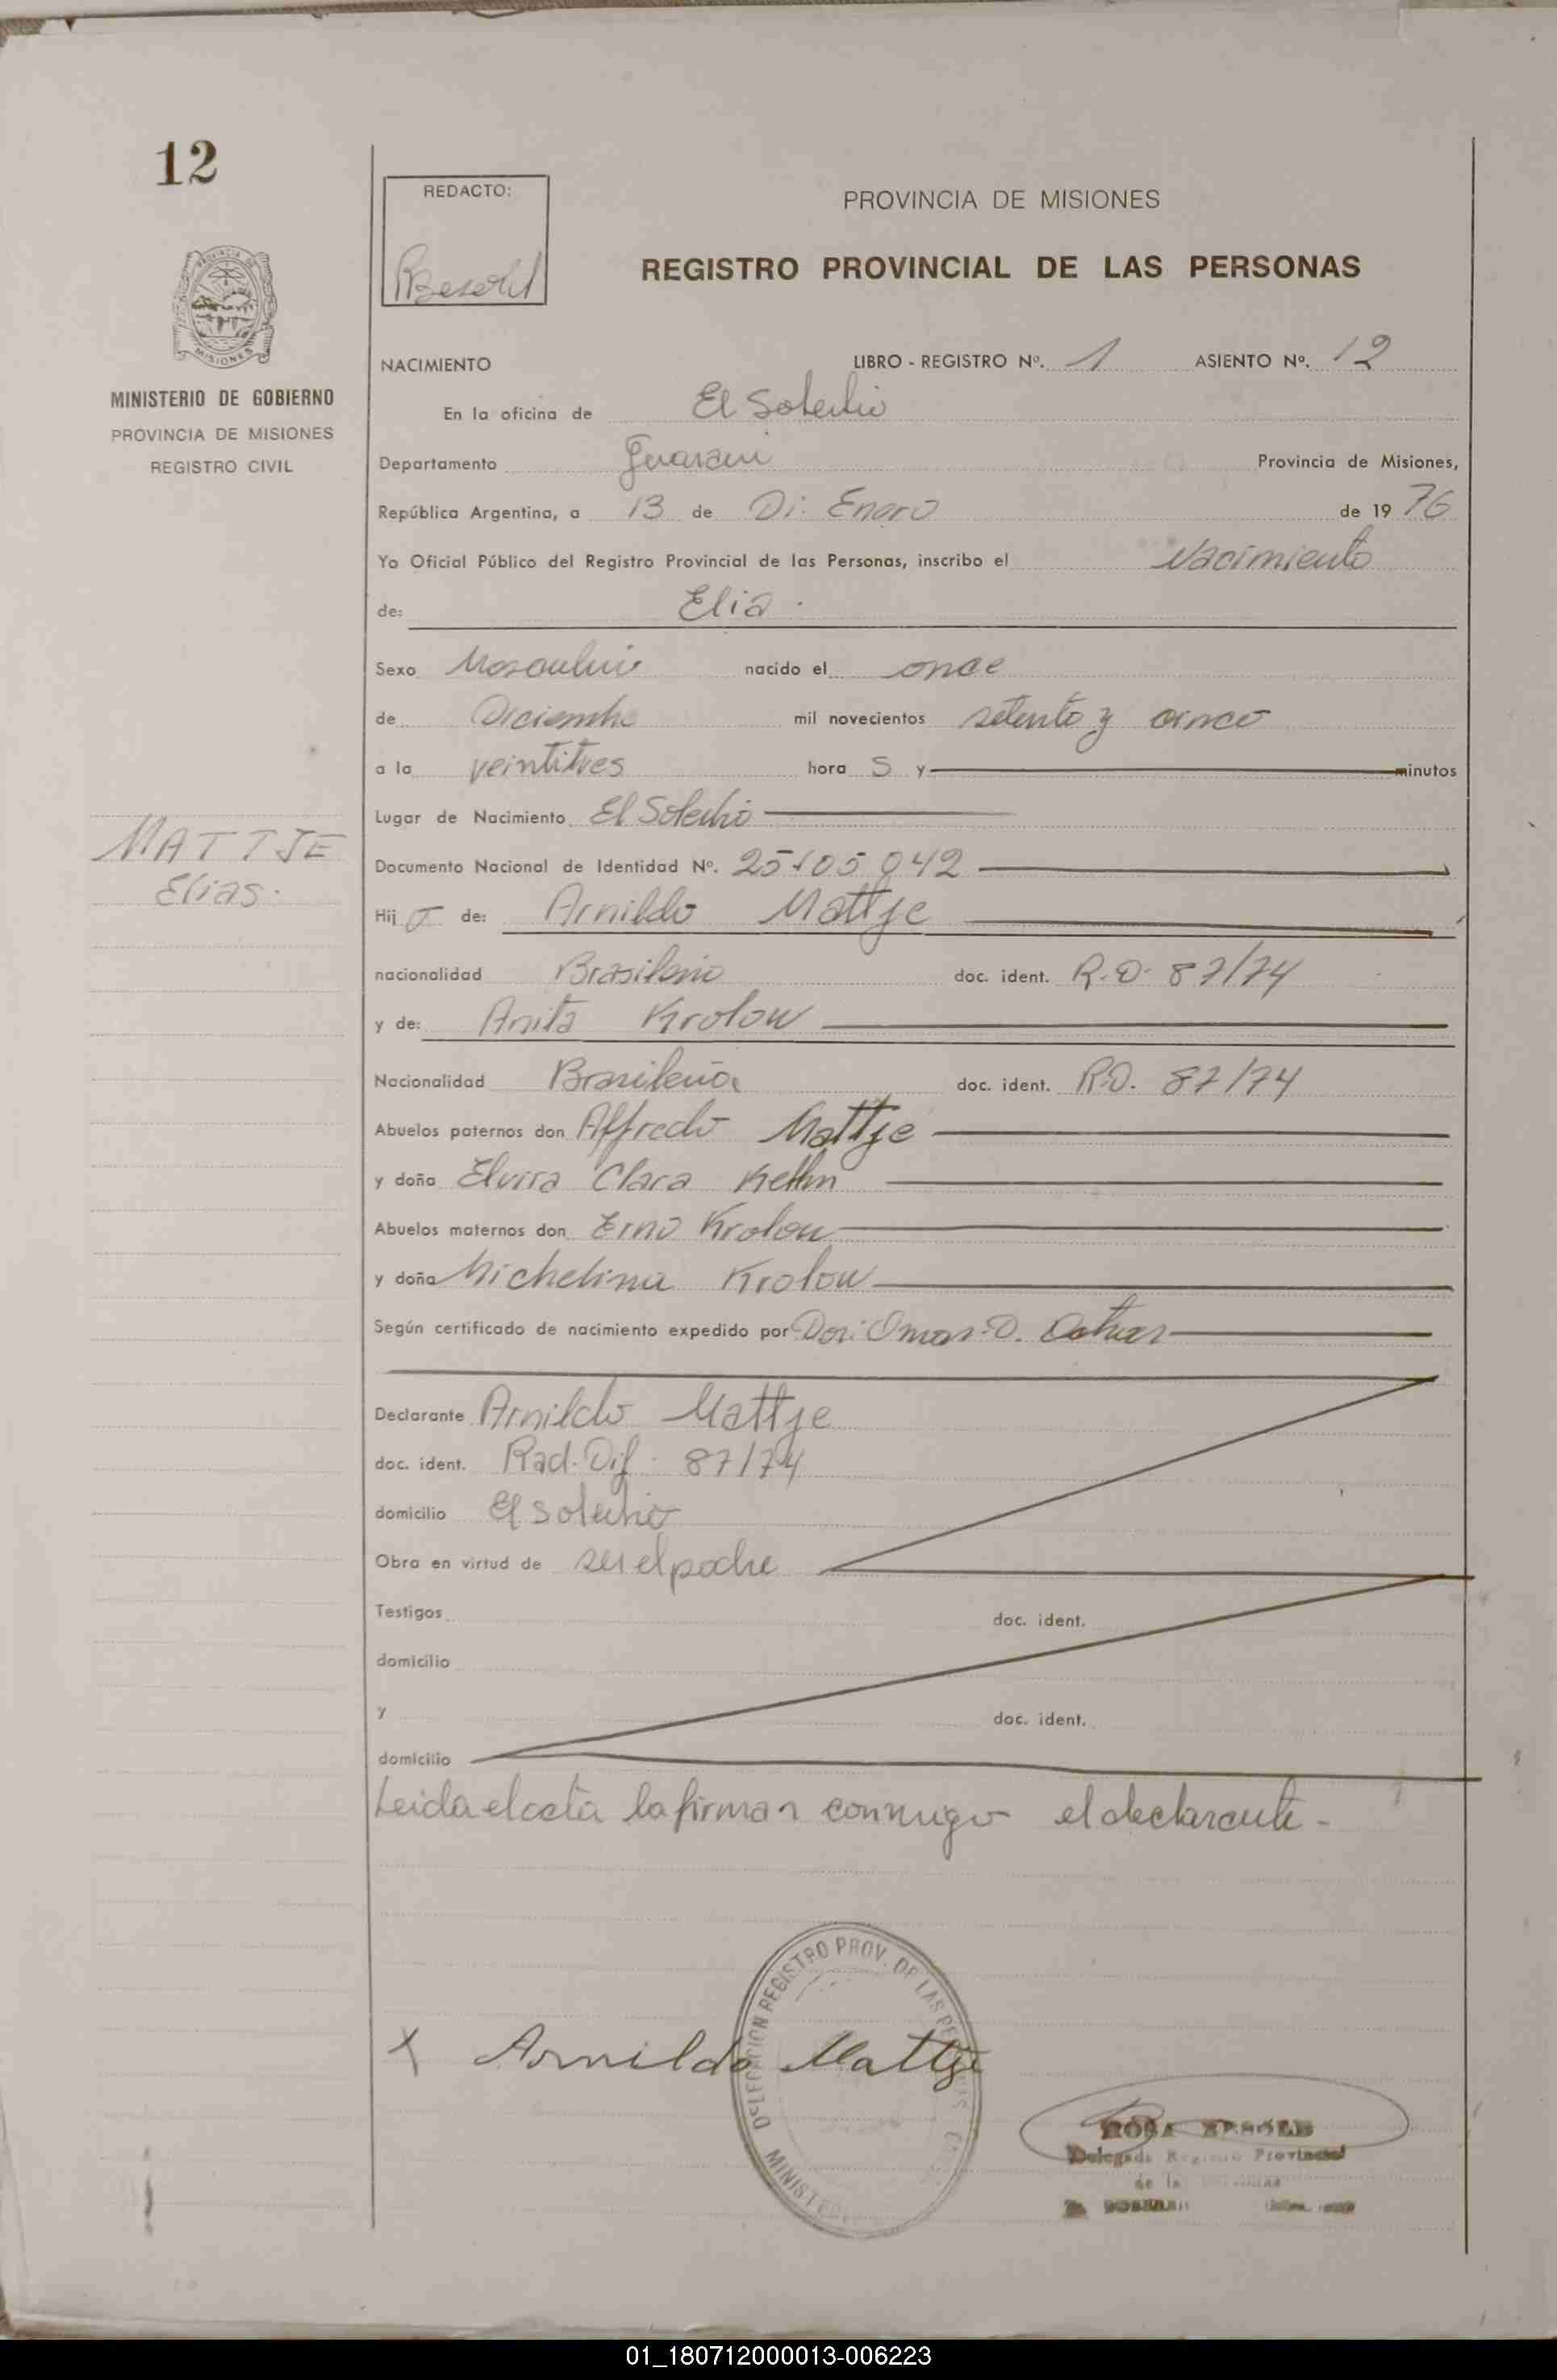 12
REDACTO:
PROVINCIA DE MISIONES
REGISTRO PROVINCIAL DE LAS PERSONAS
MISIONES
MINISTERIO DE GOBIERNO
PROVINCIA DE MISIONES
REGISTRO CIVIL
NACIMIENTO LIBRO - REGISTRO Nº. 1 ASIENTO Nº. 12
En la oficina de El Soberbio
Departamento Guarani Provincia de Misiones,
República Argentina, a 13 de Di: Enero de 1976
Yo Oficial Público del Registro Provincial de las Personas, inscribo el Nacimiento
de: Elia.
Sexo Masculino nacido el once
de Diciembre mil novecientos setenta y cinco
a la veintitres hora s y minutos
Lugar de Nacimiento El Soberbio
MATTJE
Elias.
Documento Nacional de Identidad Nº. 25105042
Hijo de: Arnildo Mattje
nacionalidad Brasileño doc. ident. R.D. 87/74
y de: Anita Krolow
Nacionalidad Brasileña doc. ident. R.D. 87/74
Abuelos paternos don Alfredo Mattje
y doña Elvira Clara
Abuelos maternos don Erno Krolow
y doña Michelina Krolow
Según certificado de nacimiento expedido por Omar D.
Declarante Arnildo Mattje
doc. ident. Rad. Dif. 87/74
domicilio El soberbio
Obra en virtud de ser el padre
Testigos doc. ident.
domicilio
y doc. ident.
domicilio
Leida el acta la firman conmigo el declarante -
DELEGACION REGISTRO PROV. DE LAS
MINISTE
X Arnildo Mattje
ROSA
Delegada Registro Provincial
de las